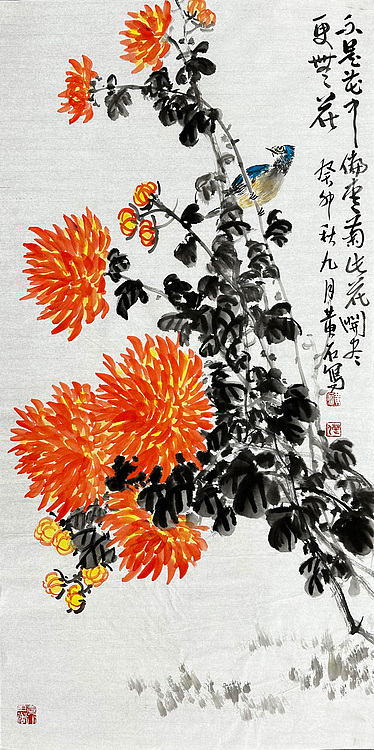 不是花中偏爱菊此花開尽
更無花
癸卯秋九月黄石写